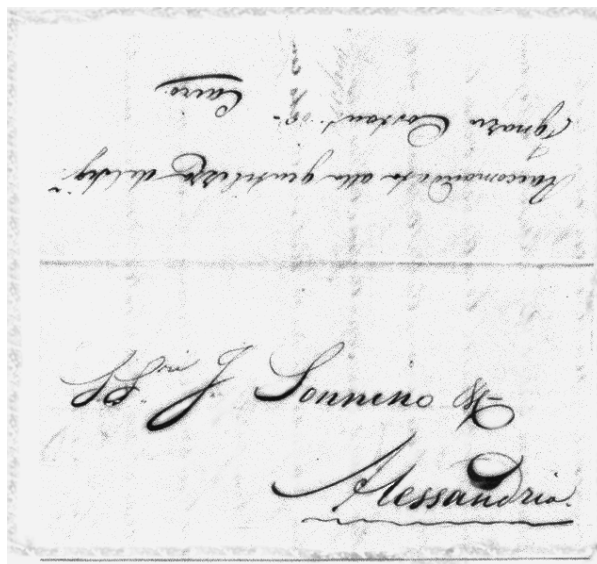 Raccomandata alla gentilezza del Sigʳ
Ignazio Costant
Cairo
SSⁿⁱ J. Sonnino & Cº
Alessandria.